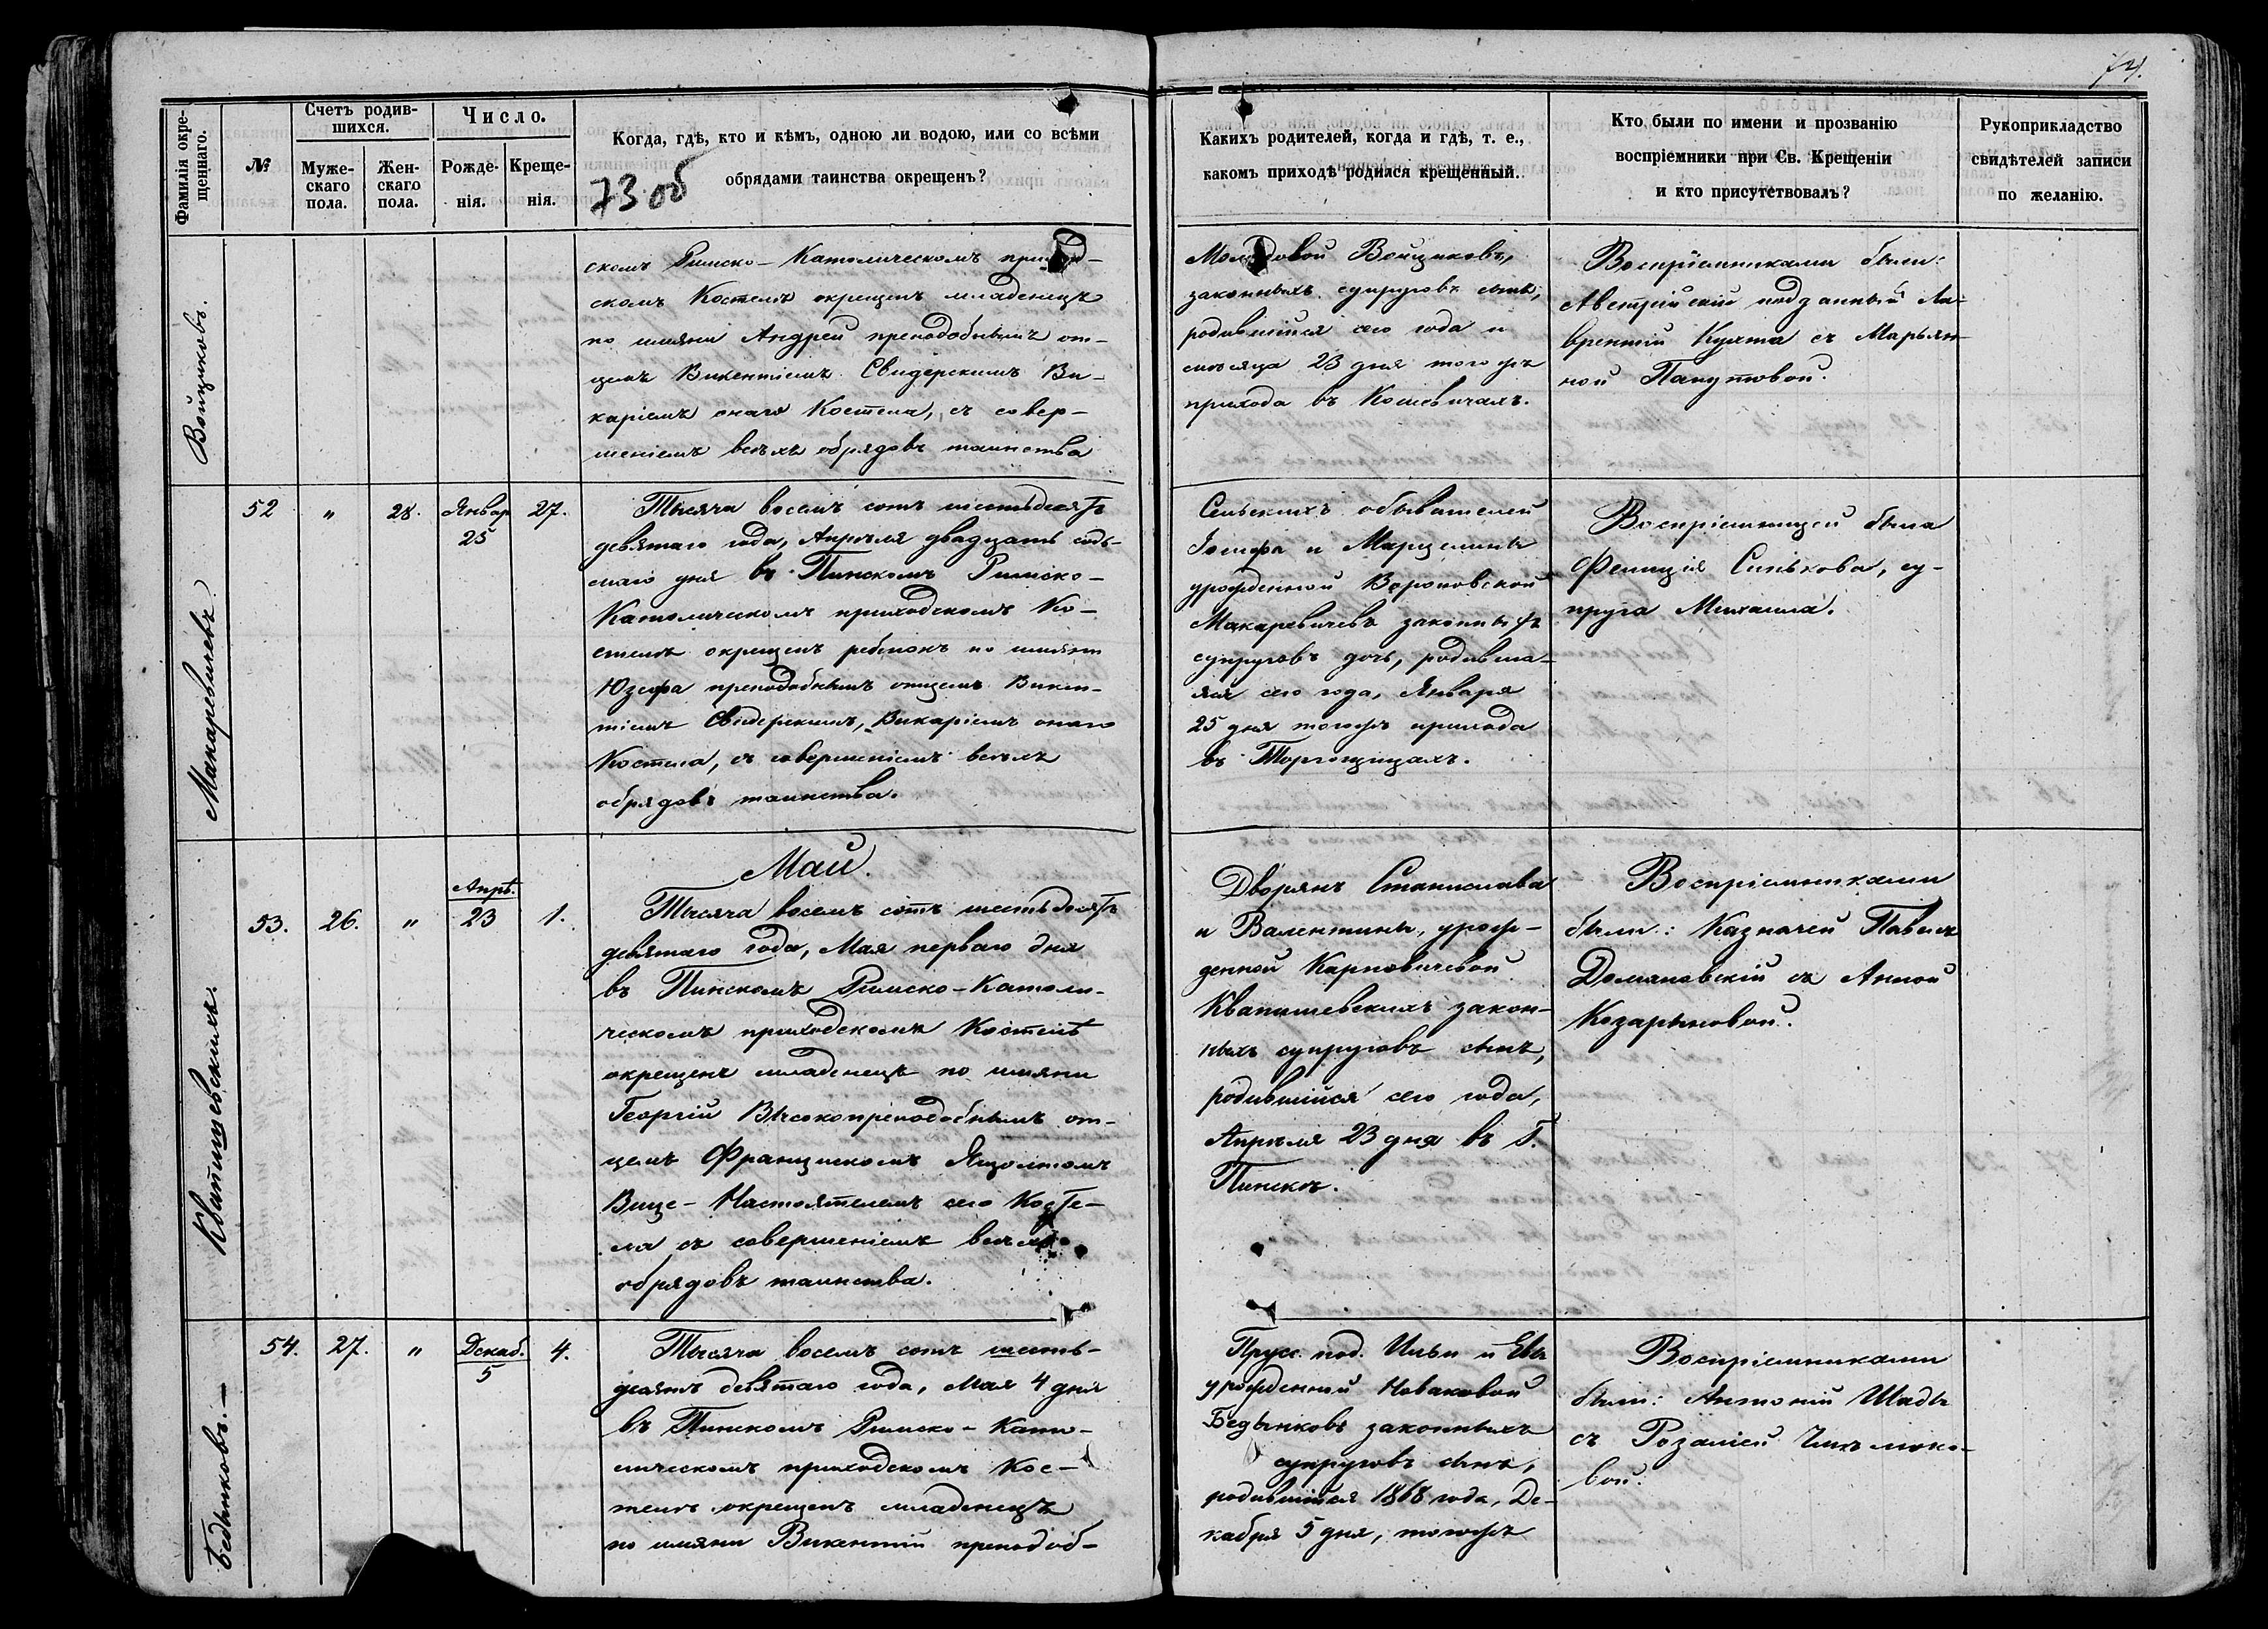 74.
Фамилія окре-
щеннаго.
№
Счетъ родив-
шихся.
Муже-
скаго
пола.
Жен-
скаго
пола.
Число.
Рожде-
нія.
Креще-
нія.
Когда, гдѣ, кто и кѣмъ, одною ли водою, или со всѣми
обрядами таинства окрещенъ?
73 об
Какихъ родителей, когда и гдѣ, т. е.,
какомъ приходѣ родился крещенный.
Кто были по имени и прозванію
воспріемники при Св. Крещеніи
и кто присутствовалъ?
Рукоприкладство
свидѣтелей записи
по желанію.
Войциковъ.
скомъ Римско-Католическомъ приход-
скомъ Костелѣ окрещенъ младенецъ
по имяни Андрей преподобнымъ от-
цемъ Викентіемъ Свидерскимъ Ви-
каріемъ онаго Костела, съ совер-
шеніемъ всѣхъ обрядовъ таинства
Войциковъ,
законныхъ супруговъ сынъ,
родившійся сего года и
мѣсяца 23 дня тогожъ
прихода въ Кошевичахъ.
Воспріемниками были:
Австрійскій подданный Ла-
врентій Кухта съ Марьян-
ной Папутовой.
Макаревичевъ.
52 " 28. Январ 27.
25
Тысяча восемь сотъ шестьдесятъ
девятаго года, Апрѣля двадцать седь-
маго дня въ Пинскомъ Римско-
Католическомъ приходскомъ Ко-
стелѣ окрещенъ ребенокъ по имяни
Юзефа преподобнымъ отцемъ Викен-
тіемъ Свидерскимъ, Викаріемъ онаго
Костела, съ совершеніемъ всѣхъ
обрядовъ таинства.
Сельскихъ обывателей
Іосифа и Марцелины
урожденной Вороновской
Макаревичевъ законныхъ
супруговъ дочь, родивша-
яся сего года, Января
25 дня тогожъ прихода
въ Торгощицахъ.
Воспріемницей была
Фелиція Синькова, су-
пруга Михаила.
Квапишевскихъ.
Апрѣ.
53. 26. " 23 1.
Май.
Тысяча восемь сотъ шестьдесятъ
девятаго года, Мая перваго дня
въ Пинскомъ Римско-Католи-
ческомъ приходскомъ Костелѣ
окрещенъ младенецъ по имяни
Георгій Высокопреподобнымъ от-
цемъ Францискомъ Яцолтомъ
Вице-Настоятелемъ сего Косте-
ла съ совершеніемъ всѣхъ
обрядовъ таинства.
Дворянъ Станислава
и Валентины, урож-
денной Карповичевой
Квапишевскихъ закон-
ныхъ супруговъ сынъ,
родившійся сего года,
Апрѣля 23 дня въ Г.
Пинскѣ.
Воспріемниками
были: Казначей Павелъ
Домановскій съ Анной
Козарыновой.
Бедынковъ.—
54. 27. " Декаб. 4.
5
Тысяча восемь сотъ шесть-
десятъ девятаго года, Мая 4 дня
въ Пинскомъ Римско-Като-
лическомъ приходскомъ Кос-
телѣ окрещенъ младенецъ
по имяни Викентій преподоб-
Прусс. под. Ильи и Евы
урожденной Новаковой
Бедынковъ законныхъ
супруговъ сынъ,
родившійся 1868 года, Де-
кабря 5 дня, тогожъ
Воспріемниками
были: Антоній Шады
съ Розаліей
вой.